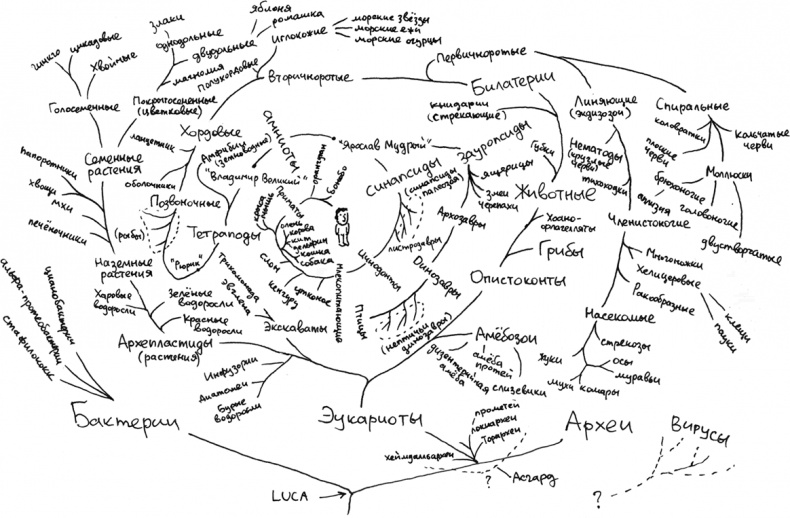 яблоня
ромашка
Иглокожие
морские звёзды
морские ежи
морские огурцы
злаки
однодольные
двудольные
магнолия
полухордовые
гинкго
цикадовые
хвойные
Голосеменные
Покрытосеменные
(Цветковые)
Вторичноротые
Первичноротые
Билатерии
книдарии
(стрекающие)
Линяющие
(экдизозои)
Спиральные
коловратки
плоские
черви
Кольчатые
черви
Моллюски
брюхоногие
головоногие
двустворчатые
Нематоды
(круглые
черви)
тихоходки
Членистоногие
Многоножки
Хелицеровые
Ракообразные
клещи
пауки
Насекомые
стрекозы
осы
муравьи
жуки
мухи
комары
Хордовые
ланцетник
оболочники
Амфибии
(Земноводные)
амниоты
"Ярослав Мудрый"
"Владимир Великий"
Зауропсиды
ящерицы
змеи
черепахи
Губки
Животные
Хоано-
флагелляты
Грибы
Опистоконты
Синапсиды
(синапсиды
палеозоя)
листрозавры
Архозавры
Динозавры
(нептичьи
динозавры)
Птицы
Цинодонты
млекопитающие
орангутан
Бонобо
Приматы
крыса
мышь
олень
корова
кит
дельфин
кошка
собака
слон
кенгуру
утконос
папоротники
хвощи
мхи
печёночники
Семенные
растения
Позвоночные
(рыбы)
Тетраподы
"Рюрик"
Наземные
растения
Харовые
водоросли
Зелёные
водоросли
Красные
водоросли
Трихомонада
эвглена
Экскаваты
Архепластиды
(растения)
Инфузории
Диатомеи
Бурые
водоросли
цианобактерии
альфа-протеобактерии
стафилококк
Амёбозои
амёба
протей
дизентерийная
амёба
слизевики
Бактерии
Эукариоты
Археи
Вирусы
прометей
локиархеи
Торархеи
хеймдалльархеи
Асгард
?
?
LUCA